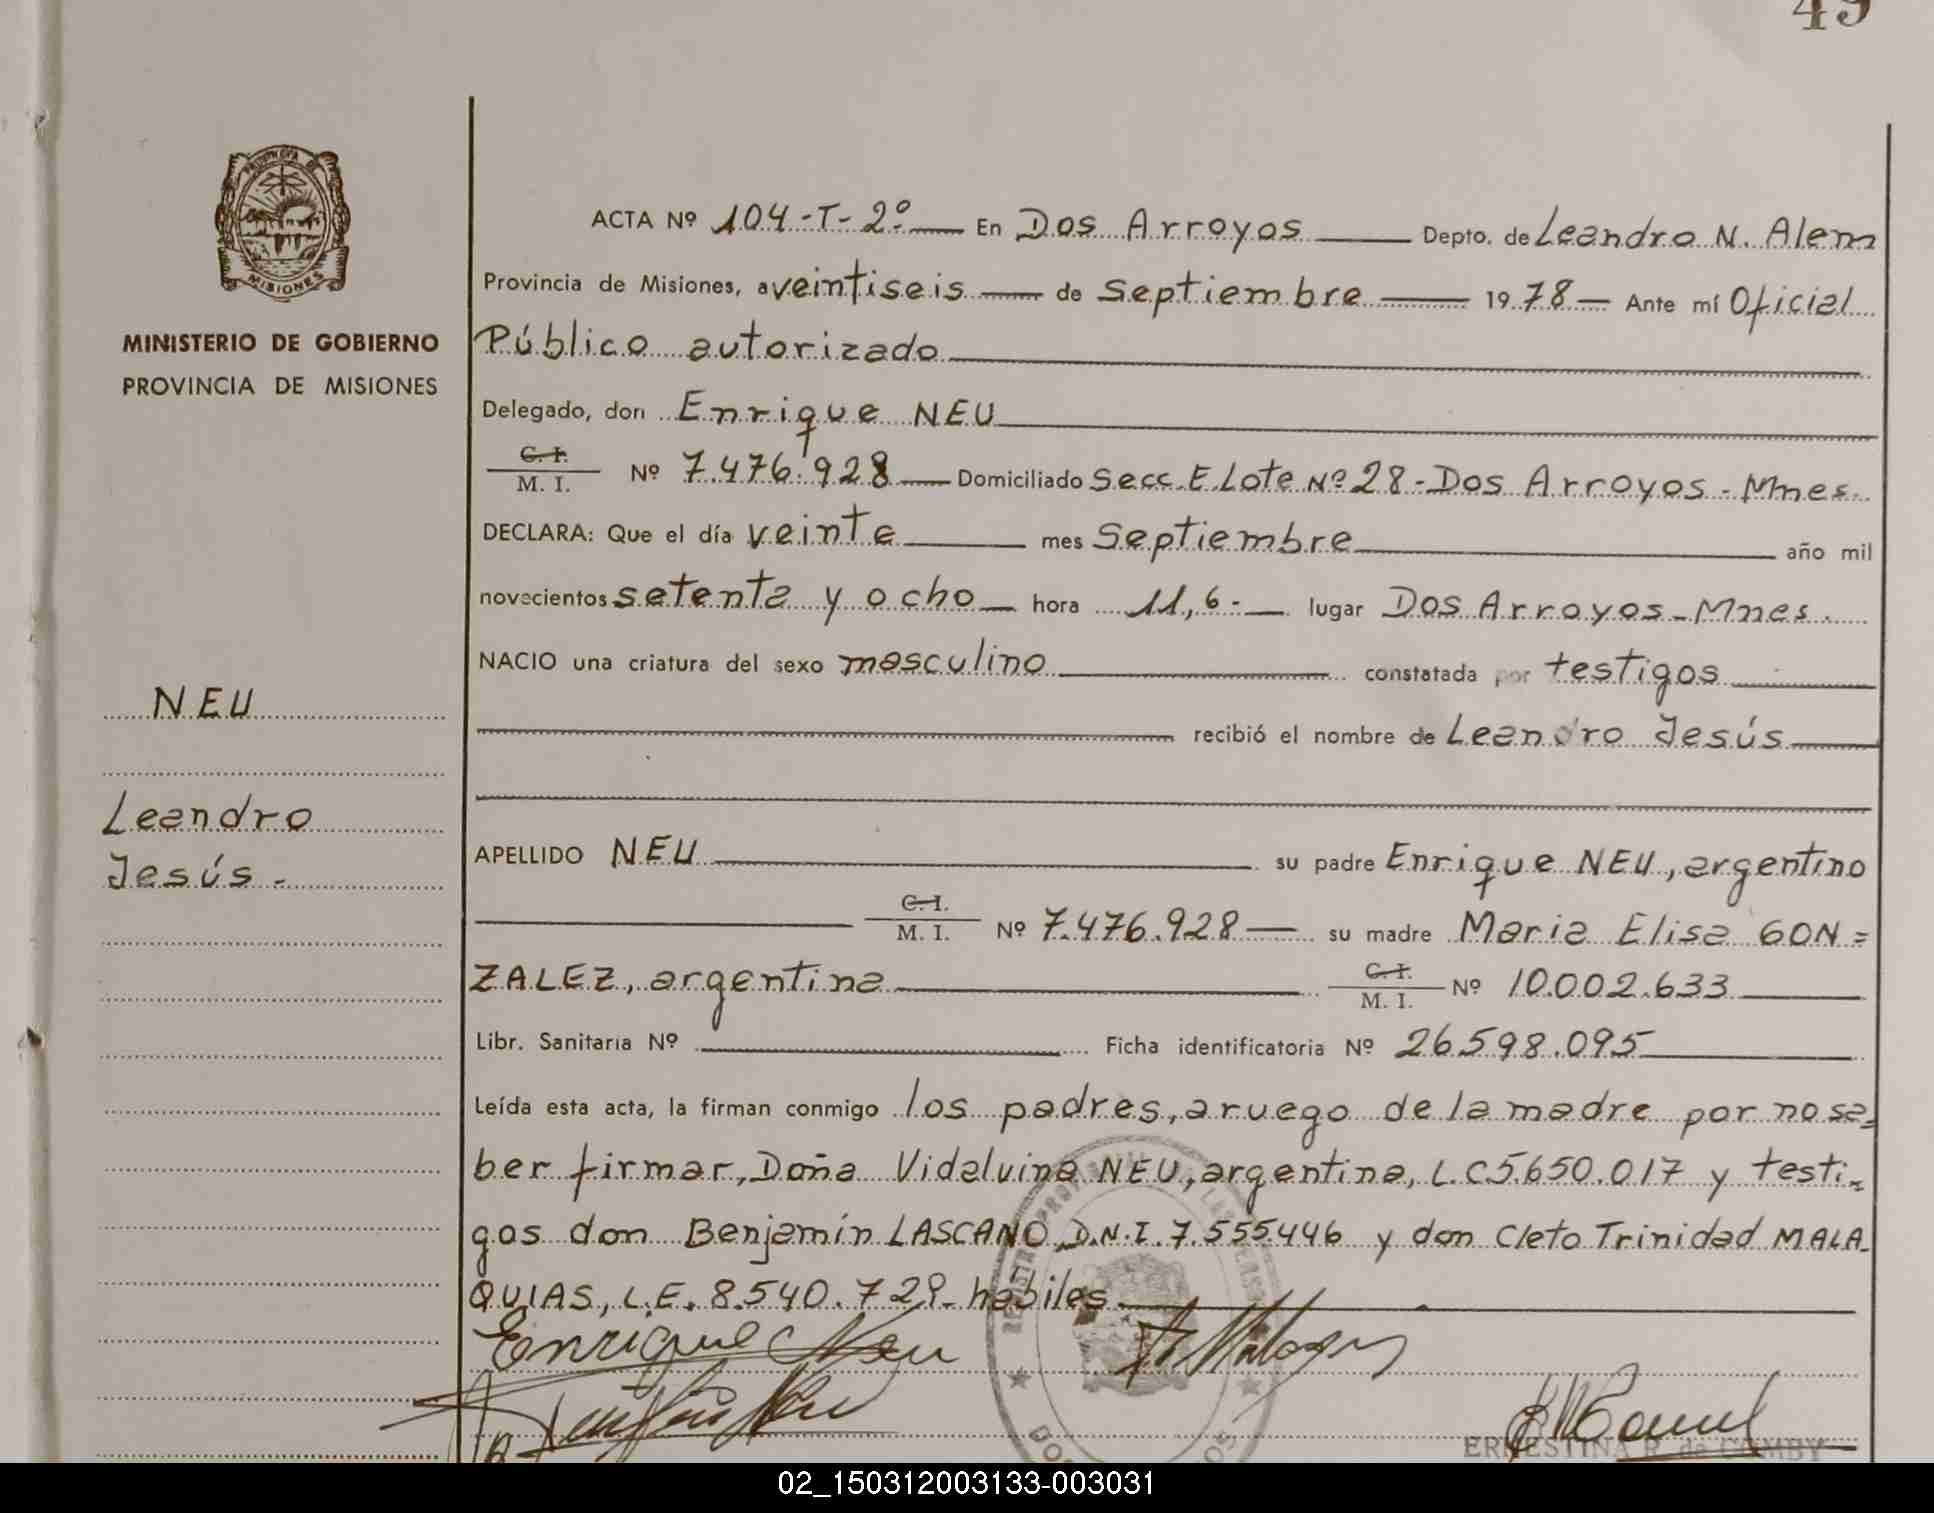 49
PROVINCIA DE
MISIONES
MINISTERIO DE GOBIERNO
PROVINCIA DE MISIONES
NEU
Leandro
Jesús -
ACTA Nº 104-T-2º En Dos Arroyos Depto. de Leandro N. Alem
Provincia de Misiones, a veintiseis de Septiembre 1978 Ante mí Oficial
Público autorizado
Delegado, don Enrique NEU
C. I.
M. I. Nº 7.476.928 Domiciliado Secc. E. Lote Nº 28 - Dos Arroyos - Mnes.
DECLARA: Que el día veinte mes Septiembre año mil
novecientos setenta y ocho hora 11,6- lugar Dos Arroyos - Mnes.
NACIO una criatura del sexo masculino constatada por testigos
recibió el nombre de Leandro Jesús
APELLIDO NEU su padre Enrique NEU, argentino
C. I.
M. I. Nº 7.476.928 su madre Maria Elisa GON=
ZALEZ, argentina C. I. M. I. Nº 10.002.633
Libr. Sanitaria Nº Ficha identificatoria Nº 26598.095
Leída esta acta, la firman conmigo los padres, a ruego de la madre por no sa=
ber firmar, Doña Vidalvina NEU, argentina, L.C 5.650.017 y testi=
gos don Benjamín LASCANO D.N.I. 7.555446 y don Cleto Trinidad MALA-
QUIAS, L.E. 8.540.729- hábiles
Enrique Neu
ERNESTINA R. de COMBY
02_150312003133-003031